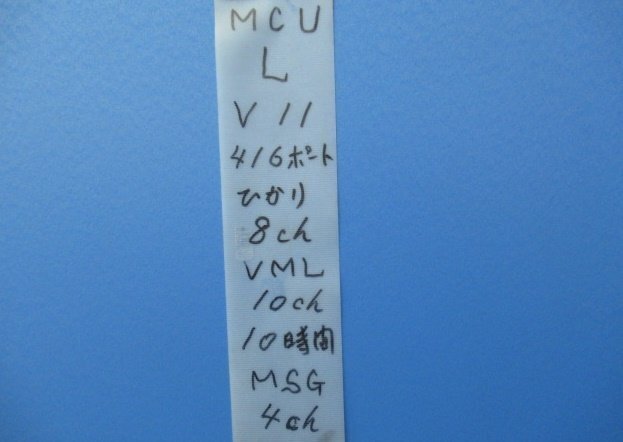 MCU
L
V11
416ポート
ひかり
8ch
VML
10ch
10時間
MSG
4ch